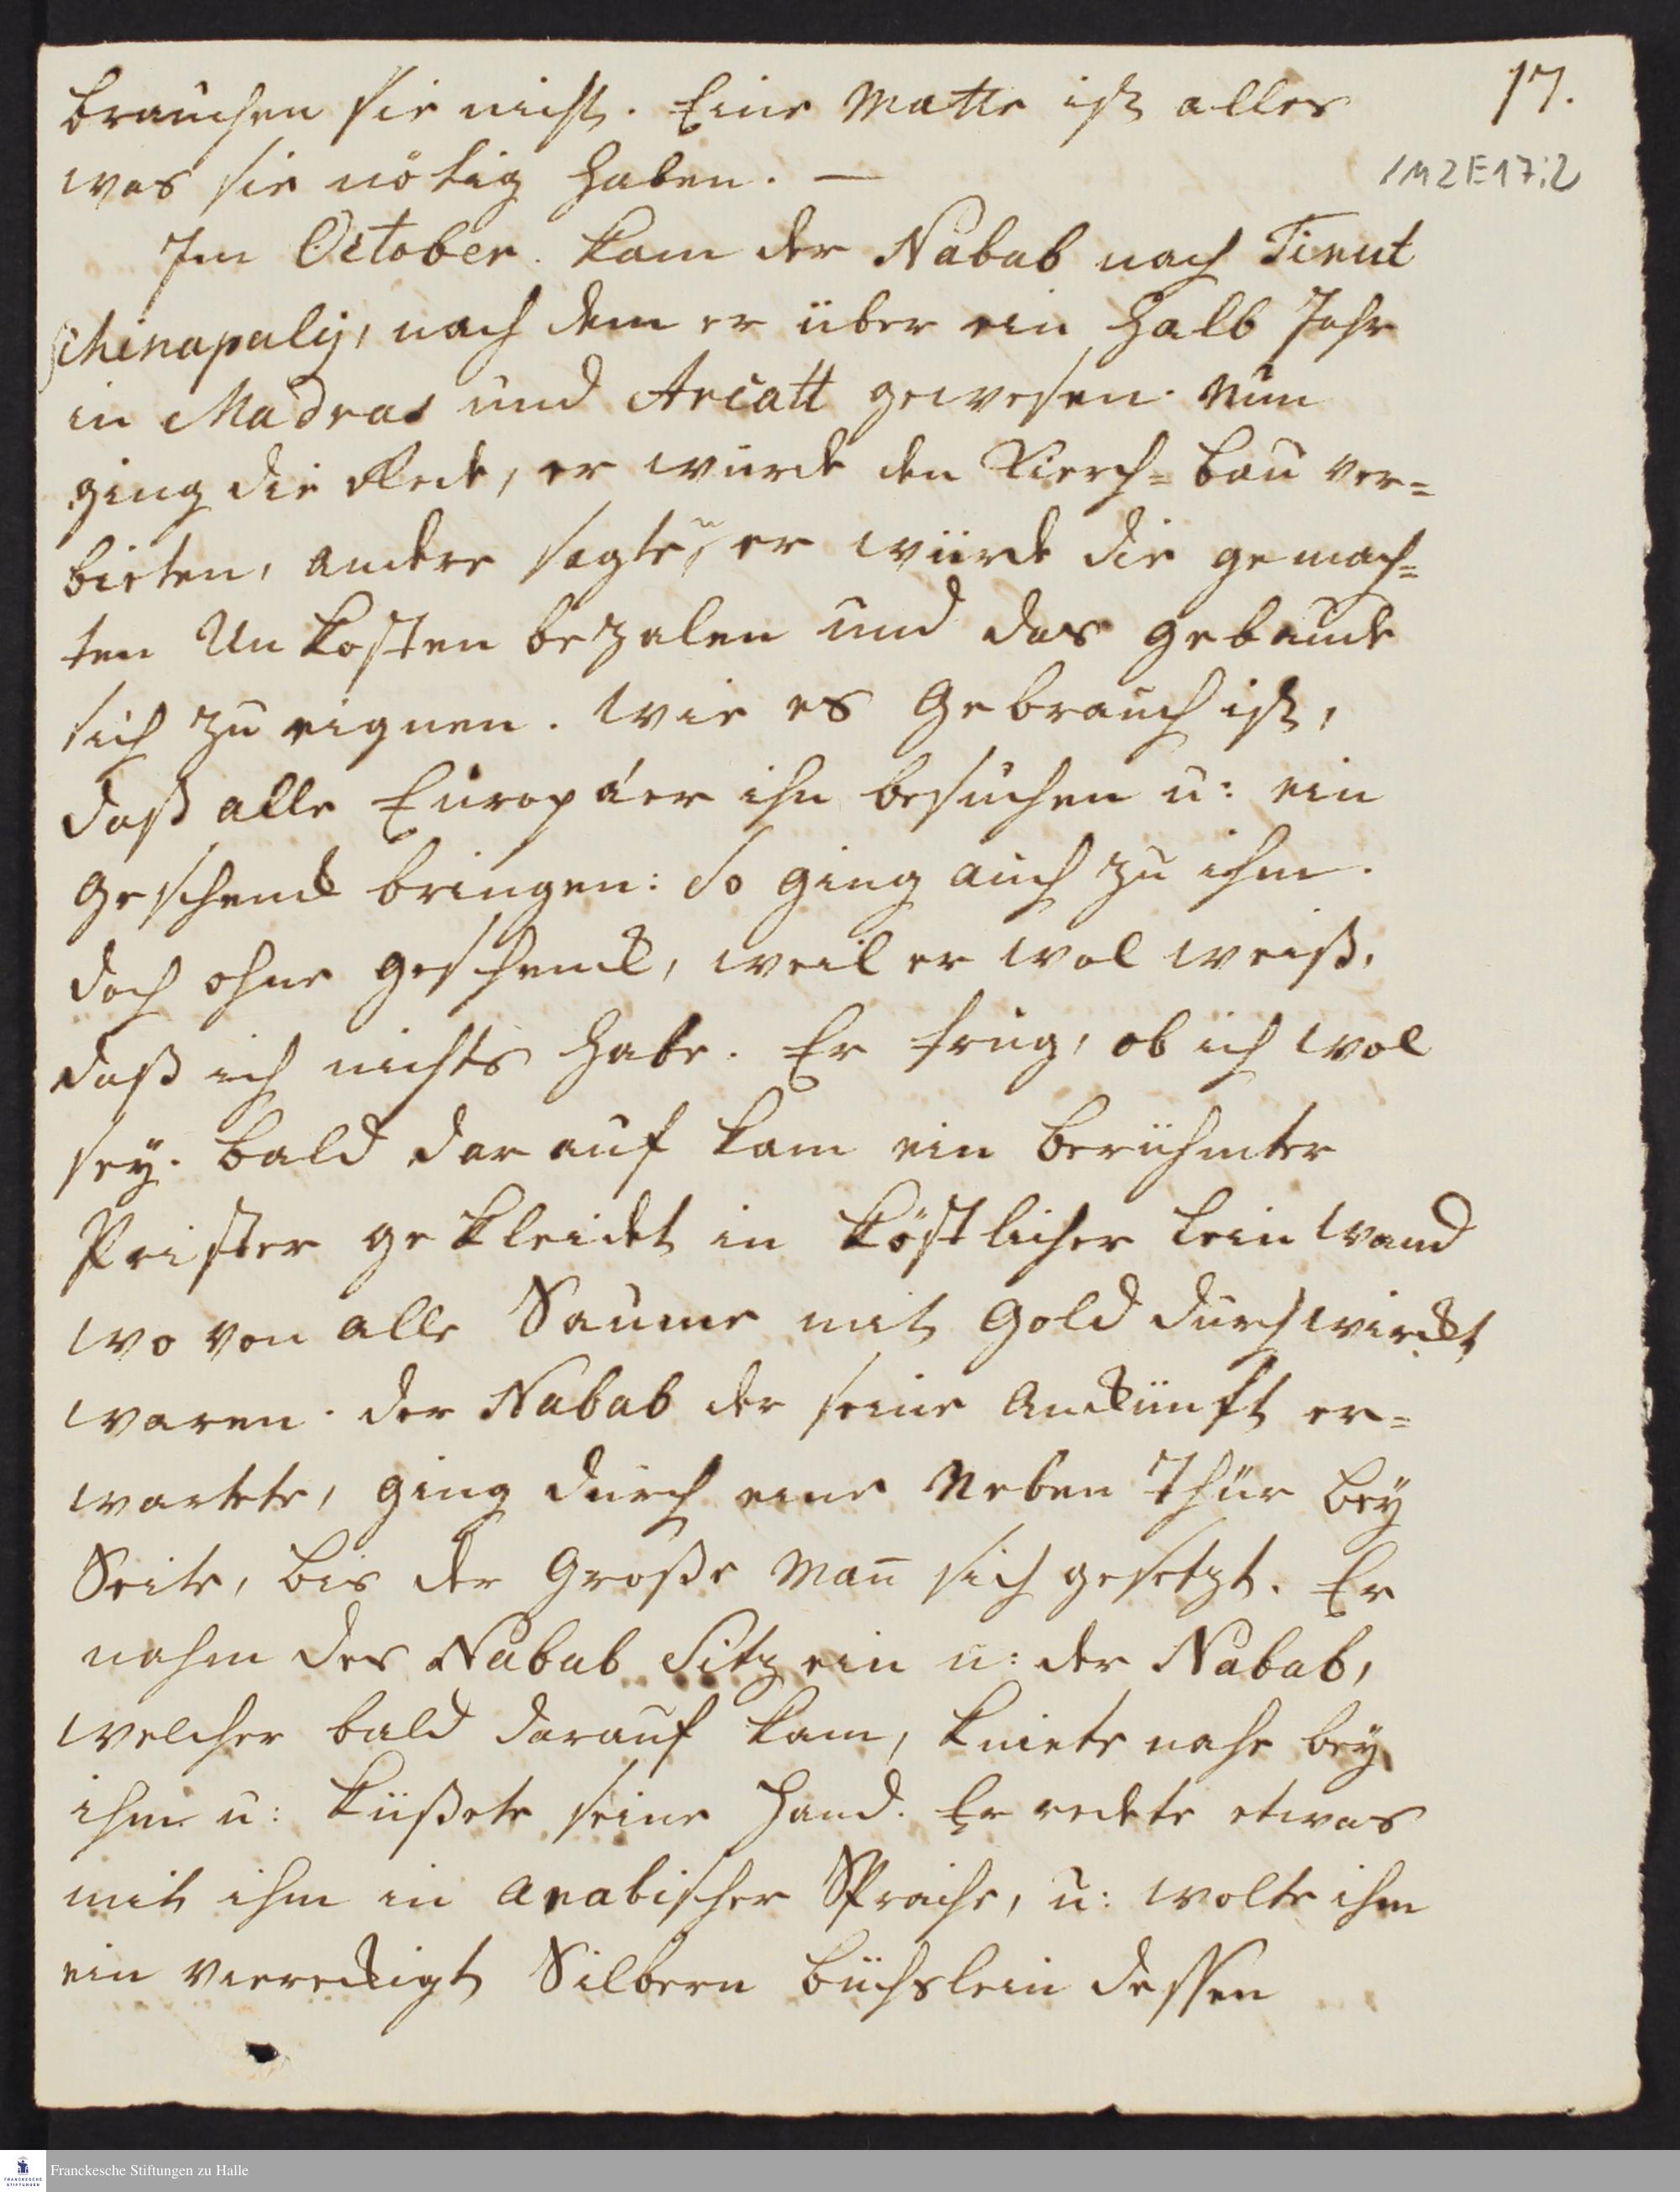 17.
brauchen sie nicht. Eine Matte ist alles
1M2E17:2
was sie nötig haben. —
Im October. kam der Nabab nach Tirut
schinapalij, nach dem er über ein halb Jahr
in Madras und Arcatt gewesen. Nun
ging die Rede, er würde den Kierch= bau ver=
bieten, andere sagten, er würde die gemach=
ten Unkosten bezalen und das Gebäude
sich zu eignen. Wie es Gebrauch ist,
daß alle Europäer ihn besuchen u: ein
Geschenck bringen: So ging auch zu ihm.
doch ohne Geschenck, weil er wol weiß,
daß ich nichts habe. Er frug, ob ich wol
sey. Bald dar auf kam ein berühmter
Prister gekleidet in köstlicher Leinwand
wo von alle Saume mit Gold durchwirckt
waren. Der Nabab der seine Anckunft er=
wartete, ging durch eine Neben Thür bey
Seite, bis der Große Man̄ sich gesetzt. Er
nahm des Nabab Sitz ein u: der Nabab,
welcher bald darauf kam, kniete nahe bey
ihm u: küßete seine Hand. Er redete etwas
mit ihm in Arabischer Sprache, u: wolte ihm
ein viereckigt Silbern Büchslein dessen
Franckesche Stiftungen zu Halle
FRANCKESCHE
STIFTUNGEN